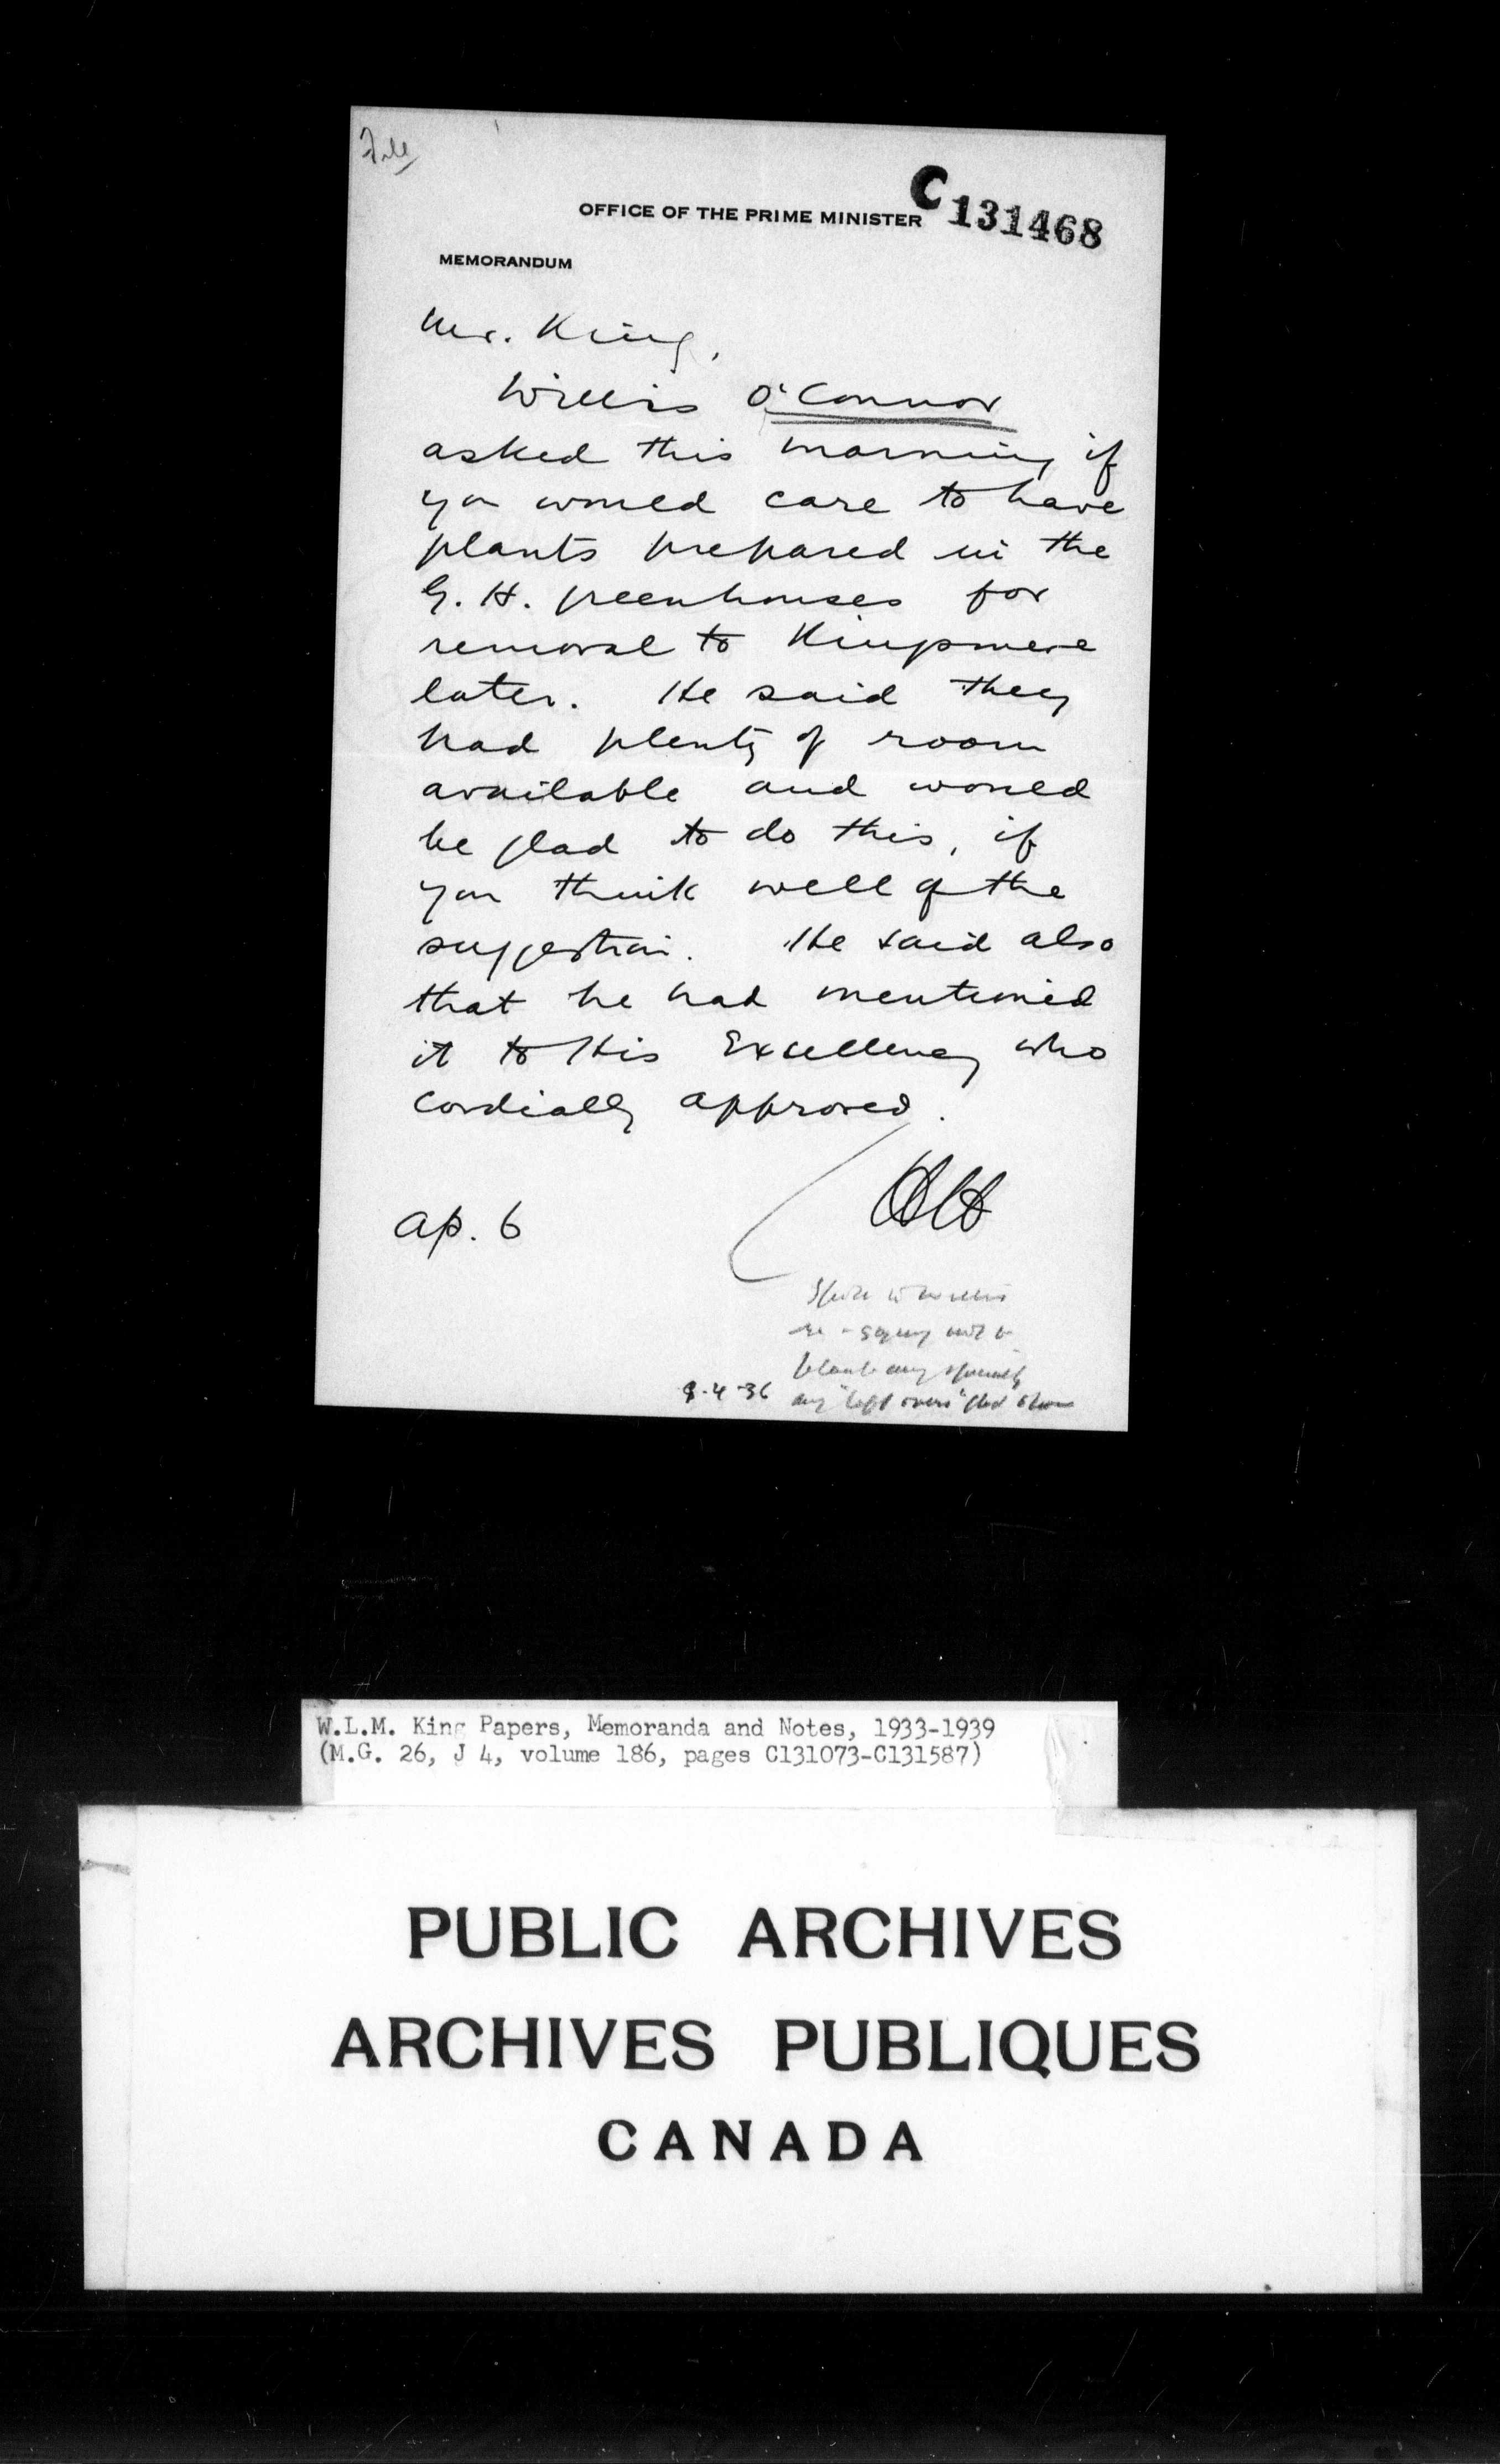 File
OFFICE OF THE PRIME MINISTER
C131468
MEMORANDUM
Mr. King,
Willis O'Connor
asked this morning if
you would care to have
plants prepared in the
G. H. greenhouses for
removal to Kingsmere
later. He said they
had plenty of room
available and would
be glad to do this, if
you think well of the
suggestion. He said also
that he had mentioned
it to His Excellency who
cordially approved.
Ap. 6
re - saying not to
plant any specially
any "left overs" glad
8-4-36
W.L.M. King Papers, Memoranda and Notes, 1933-1939
(M.G. 26, J 4, volume 186, pages C131073-C131587)
PUBLIC ARCHIVES
ARCHIVES PUBLIQUES
CANADA